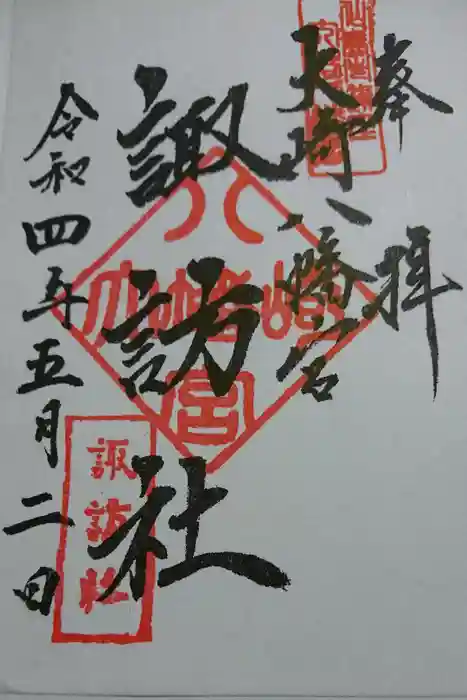 奉拝
大崎八幡宮
諏訪社
令和四年五月二日
大崎八幡宮
諏訪社